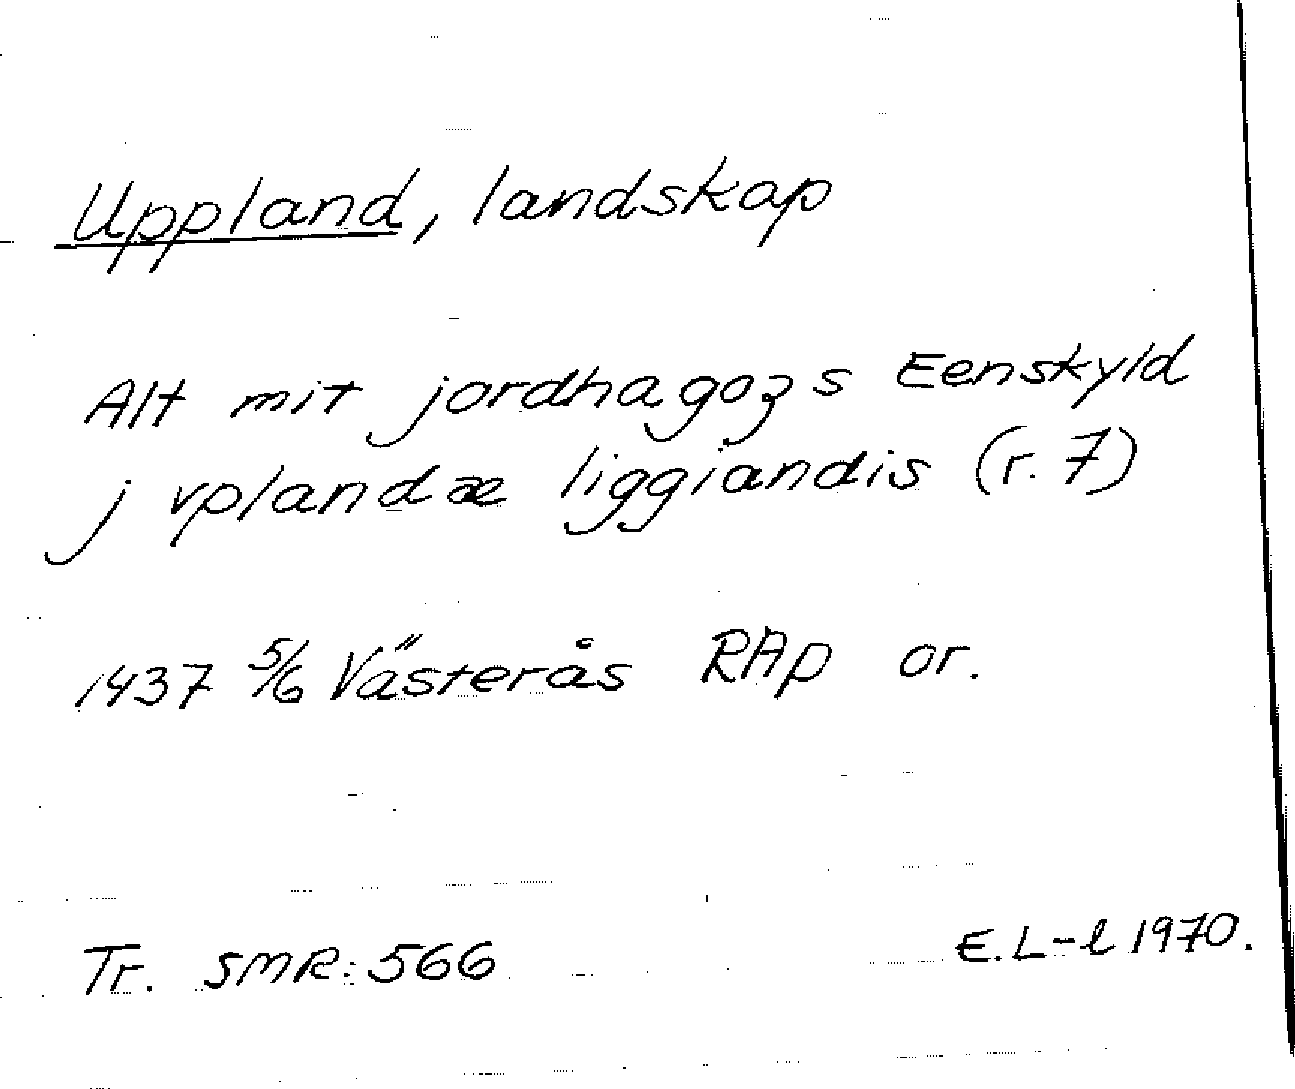 Uppland, landskap
Alt mit jordhagozs Eenskyld
j vplandæ liggiandis (r. 7)
1437 5/6 Västerås RAp or.
Tr. SMR: 566
E. L-l 1970.